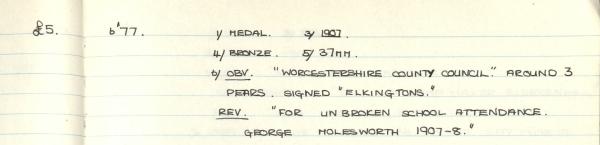 £5. 6'77. 1/ MEDAL. 3/ 1907.
4/ BRONZE. 5/ 37MM.
6/ OBV. "WORCESTERSHIRE COUNTY COUNCIL." AROUND 3
PEARS. SIGNED "ELKINGTONS."
REV. "FOR UNBROKEN SCHOOL ATTENDANCE.
GEORGE MOLESWORTH 1907-8."